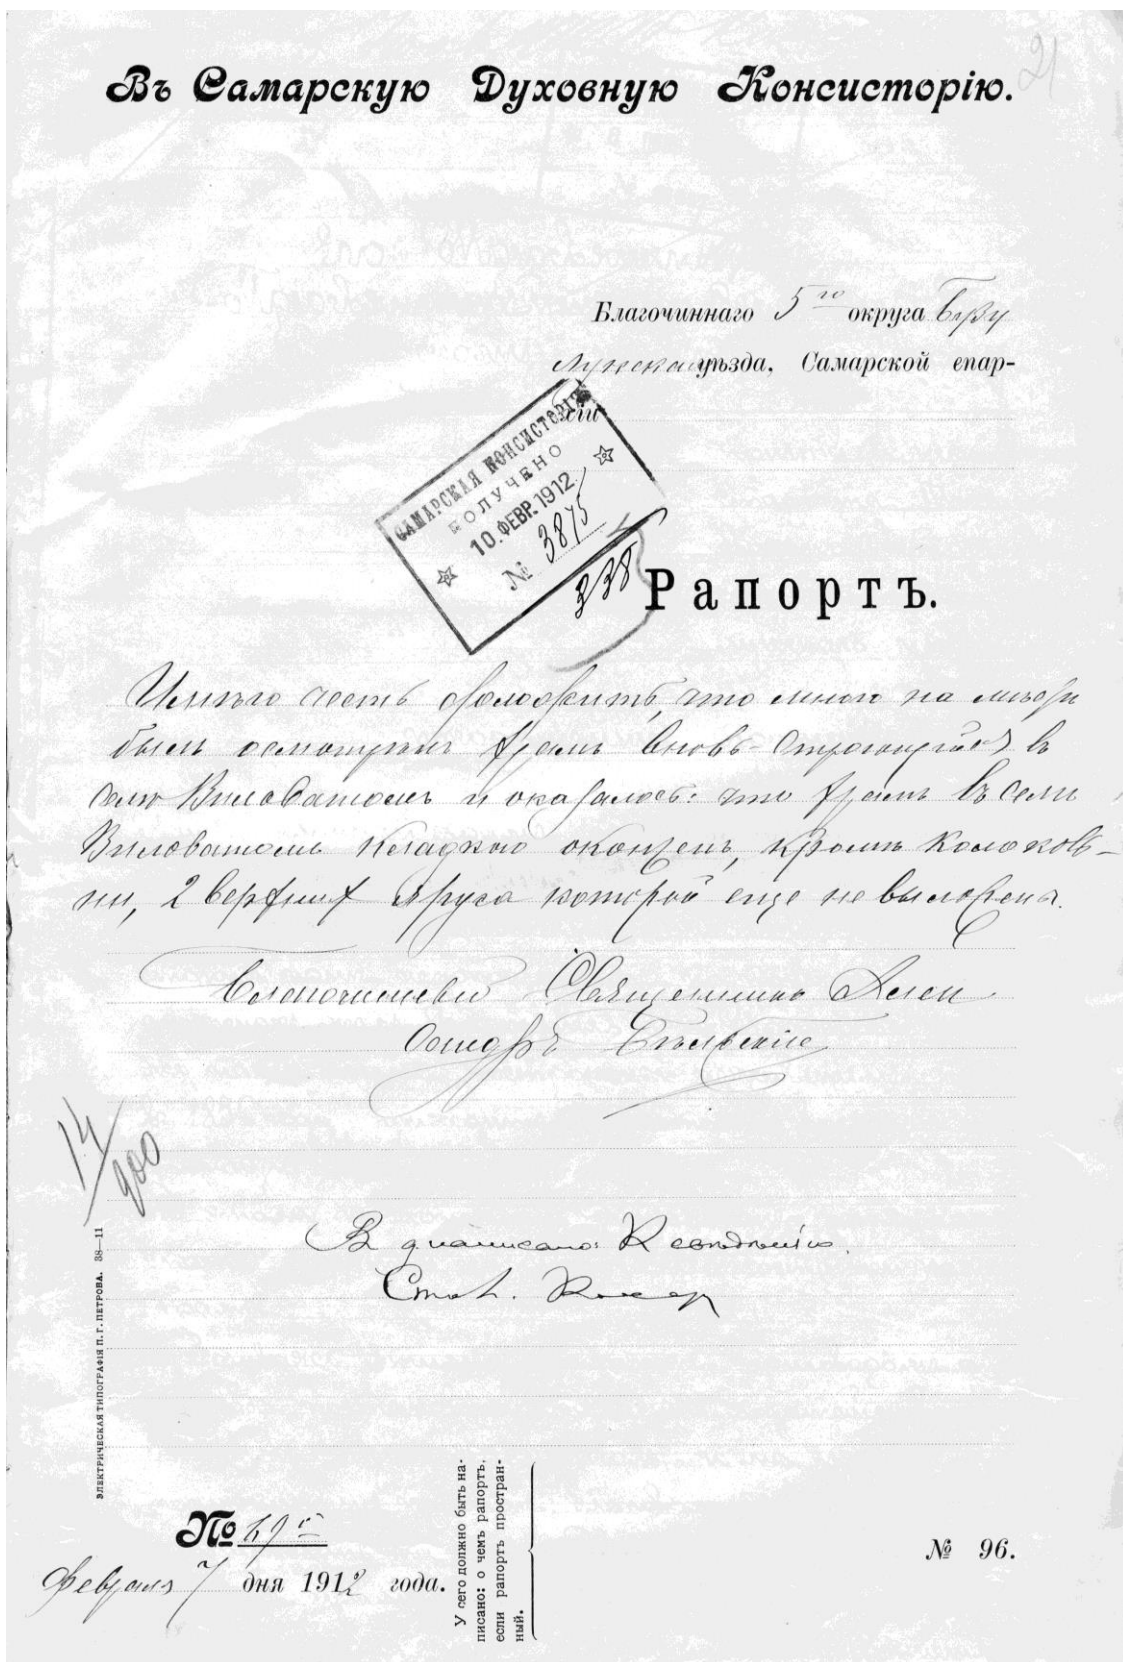 21
Въ Самарскую Духовную Консисторію.
Благочиннаго 5го округа Бузу
лукскаго уѣзда, Самарской епар-
хіи
САМАРСКАЯ КОНСИСТОРІЯ
ПОЛУЧЕНО
10. ФЕВР. 1912
№ 3875
338
Рапортъ.
Имѣю честь доложить, что мною на мѣстѣ
былъ осмотрѣнъ храмъ вновь-строющійся въ
селѣ Виловатомъ и оказалось: что храмъ въ селѣ
Виловатомъ кладкою оконченъ, кромѣ колоколь-
ни, 2 верхних яруса которой еще не выложены.
Благочинный Священникъ Алек
сандръ Бѣльскій
14/900
К свѣдѣнію.
Стол.
ЭЛЕКТРИЧЕСКАЯ ТИПОГРАФІЯ П. Г. ПЕТРОВА. 38—11
№
Февраля 7 дня 1912 года.
У сего должно быть на-
писано: о чемъ рапортъ,
если рапортъ простран-
ный.
№ 96.